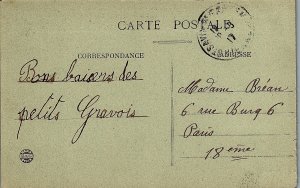 CARTE POSTALE
CORRESPONDANCE
ADRESSE
Bons baisers des
petits Gravois
Madame Bréan
6 rue Burq 6
Paris
18ème